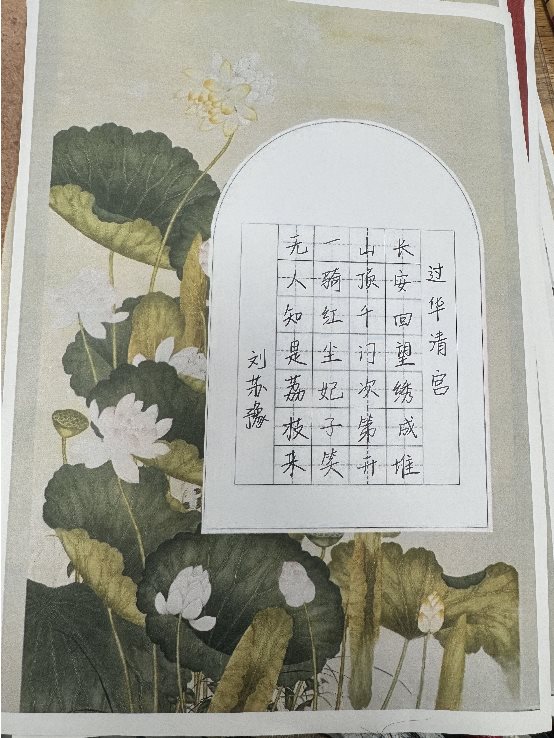 过华清宫
长安回望绣成堆
山顶千门次第开
一骑红尘妃子笑
无人知是荔枝来
刘苏豫